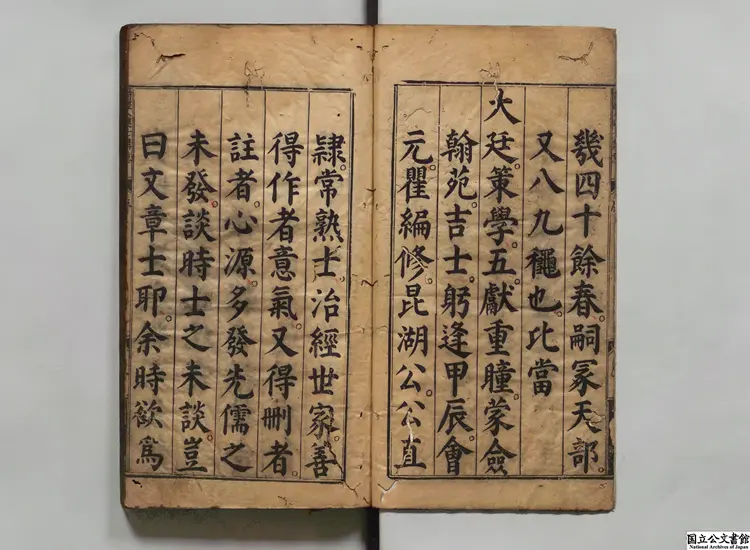 幾四十餘春嗣冢天部
又八九穐也比當
大廷策學五獻重瞳蒙僉
翰苑吉士躬逢甲辰會
元瞿編修昆湖公公直
隷常熟士治經世家善
得作者意氣又得刪者
註者心源多發先儒之
未發談時士之未談豈
曰文章士耶余時欲爲
国立公文書館
National Archives of Japan